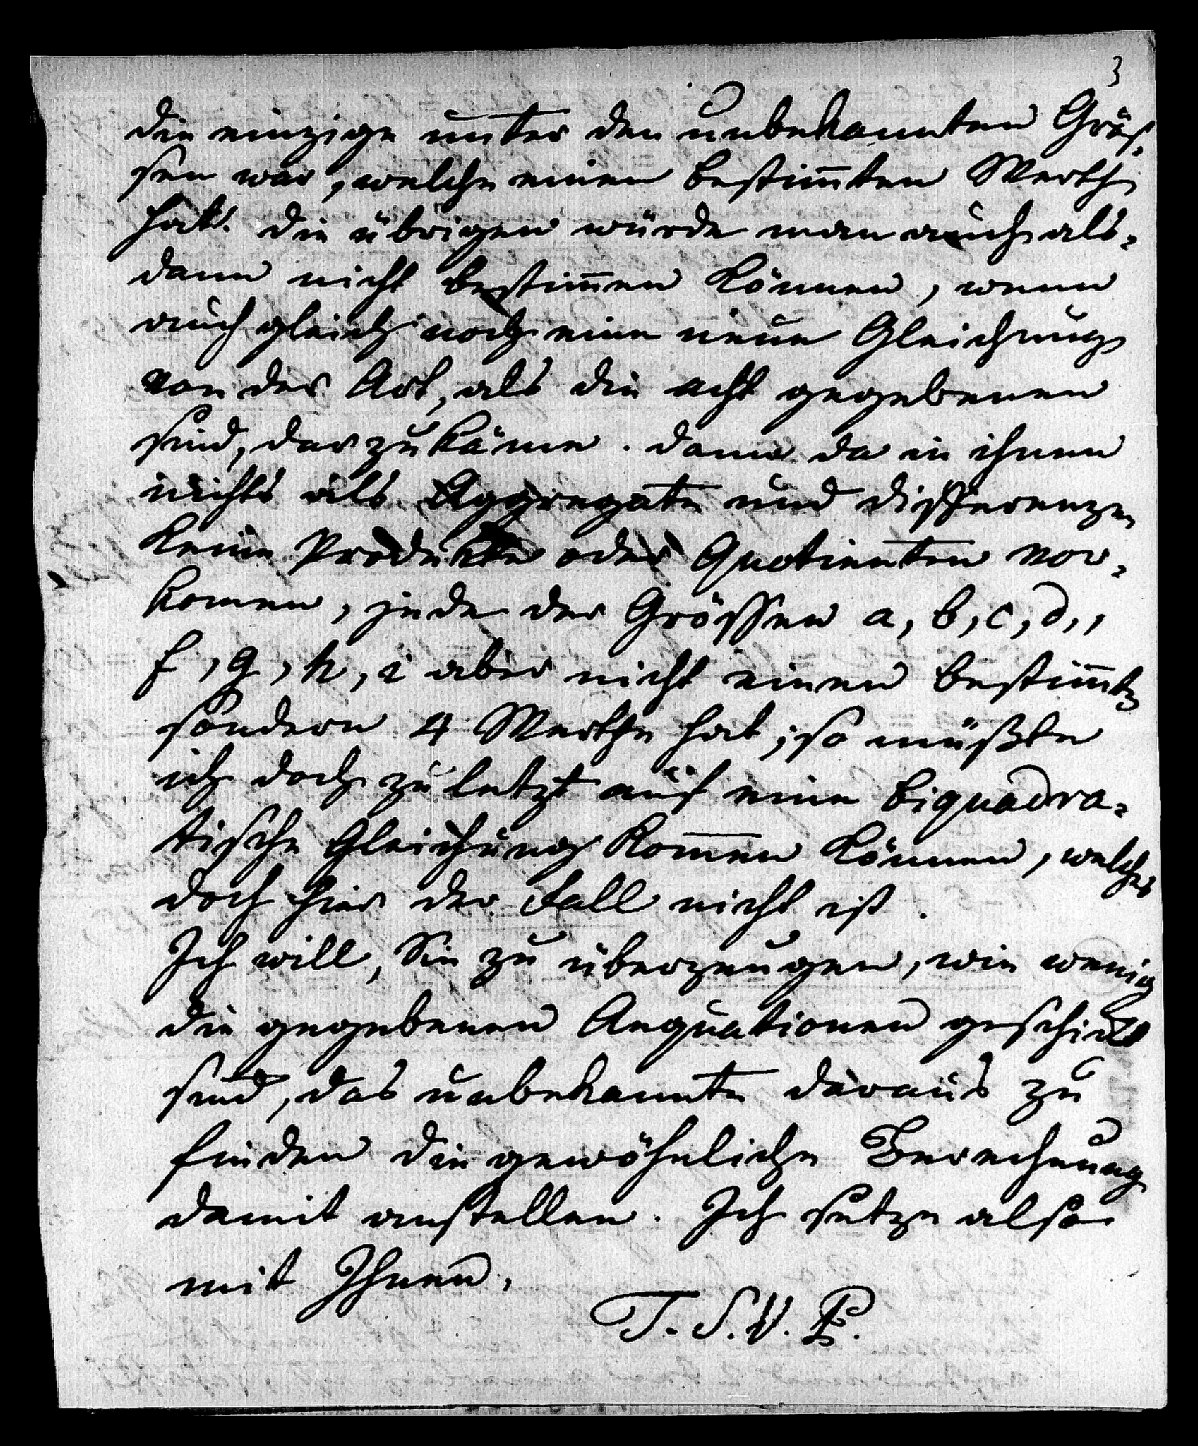 3
die einzige unter den unbekannten Grös-
sen war, welche einen bestim̄ten Werth
hat. die übrigen würde man auch als-
dann nicht bestim̄en können, wenn
auch gleich noch eine neue Gleichung
von der Art, als die acht gegebenen
sind, darzu käme. denn da in ihnen
nichts als Aggregate und differenzen
keine Produkte oder Quotienten vor-
komen, jede der Grössen a, b, c, d,,
f, g, h, i aber nicht einen bestim̄ten
sondern 4 Werthe hat; so müßte
ich doch zu letzt auf eine biquadra-
tische Gleichung kom̄en können, welches
doch hier der Fall nicht ist.
Ich will, Sie zu überzeugen, wie wenig
die gegebenen Aequationen geschickt
sind, das unbekannte daraus zu
finden die gewöhnliche Berechnung
damit anstellen. Ich setze also
mit Ihnen,
T. S. V. P.